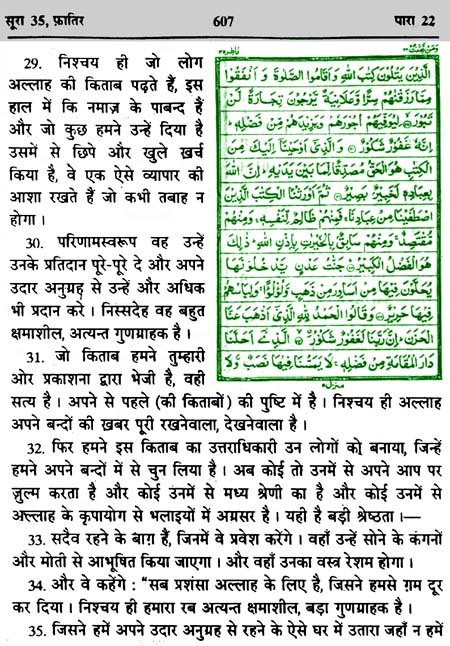 सूरा 35, फ़ातिर 607 पारा 22
29. निश्चय ही जो लोग
अल्लाह की किताब पढ़ते हैं, इस
हाल में कि नमाज़ के पाबन्द हैं
और जो कुछ हमने उन्हें दिया है
उसमें से छिपे और खुले ख़र्च
किया है, वे एक ऐसे व्यापार की
आशा रखते हैं जो कभी तबाह न
होगा।
30. परिणामस्वरूप वह उन्हें
उनके प्रतिदान पूरे-पूरे दे और अपने
उदार अनुग्रह से उन्हें और अधिक
भी प्रदान करे। निस्सदेह वह बहुत
क्षमाशील, अत्यन्त गुणग्राहक है।
31. जो किताब हमने तुम्हारी
ओर प्रकाशना द्वारा भेजी है, वही
सत्य है। अपने से पहले (की किताबों) की पुष्टि में है। निश्चय ही अल्लाह
अपने बन्दों की ख़बर पूरी रखनेवाला, देखनेवाला है।
32. फिर हमने इस किताब का उत्तराधिकारी उन लोगों को बनाया, जिन्हें
हमने अपने बन्दों में से चुन लिया है। अब कोई तो उनमें से अपने आप पर
ज़ुल्म करता है और कोई उनमें से मध्य श्रेणी का है और कोई उनमें से
अल्लाह के कृपायोग से भलाइयों में अग्रसर है। यही है बड़ी श्रेष्ठता।—
33. सदैव रहने के बाग़ हैं, जिनमें वे प्रवेश करेंगे। वहाँ उन्हें सोने के कंगनों
और मोती से आभूषित किया जाएगा। और वहाँ उनका वस्त्र रेशम होगा।
34. और वे कहेंगे : “सब प्रशंसा अल्लाह के लिए है, जिसने हमसे ग़म दूर
कर दिया। निश्चय ही हमारा रब अत्यन्त क्षमाशील, बड़ा गुणग्राहक है।
35. जिसने हमें अपने उदार अनुग्रह से रहने के ऐसे घर में उतारा जहाँ न हमें
الَّذِيْنَ يَتْلُوْنَ كِتٰبَ اللّٰهِ وَاَقَامُوا الصَّلٰوةَ وَ اَنْفَقُوْا
مِمَّا رَزَقْنٰهُمْ سِرًّا وَّعَلَانِيَةً يَّرْجُوْنَ تِجَارَةً لَّنْ
تَبُوْرَ لِيُوَفِّيَهُمْ اُجُوْرَهُمْ وَيَزِيْدَهُمْ مِّنْ فَضْلِهٖ
اِنَّهٗ غَفُوْرٌ شَكُوْرٌ وَالَّذِيْٓ اَوْحَيْنَآ اِلَيْكَ مِنَ
الْكِتٰبِ هُوَ الْحَقُّ مُصَدِّقًا لِّمَا بَيْنَ يَدَيْهِ اِنَّ اللّٰهَ
بِعِبَادِهٖ لَخَبِيْرٌ بَصِيْرٌ ثُمَّ اَوْرَثْنَا الْكِتٰبَ الَّذِيْنَ
اصْطَفَيْنَا مِنْ عِبَادِنَا فَمِنْهُمْ ظَالِمٌ لِّنَفْسِهٖ وَمِنْهُمْ
مُّقْتَصِدٌ وَمِنْهُمْ سَابِقٌ بِالْخَيْرٰتِ بِاِذْنِ اللّٰهِ ذٰلِكَ
هُوَ الْفَضْلُ الْكَبِيْرُ جَنّٰتُ عَدْنٍ يَّدْخُلُوْنَهَا
يُحَلَّوْنَ فِيْهَا مِنْ اَسَاوِرَ مِنْ ذَهَبٍ وَّلُؤْلُؤًا وَلِبَاسُهُمْ
فِيْهَا حَرِيْرٌ وَقَالُوا الْحَمْدُ لِلّٰهِ الَّذِيْٓ اَذْهَبَ عَنَّا
الْحَزَنَ اِنَّ رَبَّنَا لَغَفُوْرٌ شَكُوْرُ الَّذِيْٓ اَحَلَّنَا
دَارَ الْمُقَامَةِ مِنْ فَضْلِهٖ لَا يَمَسُّنَا فِيْهَا نَصَبٌ وَّلَا